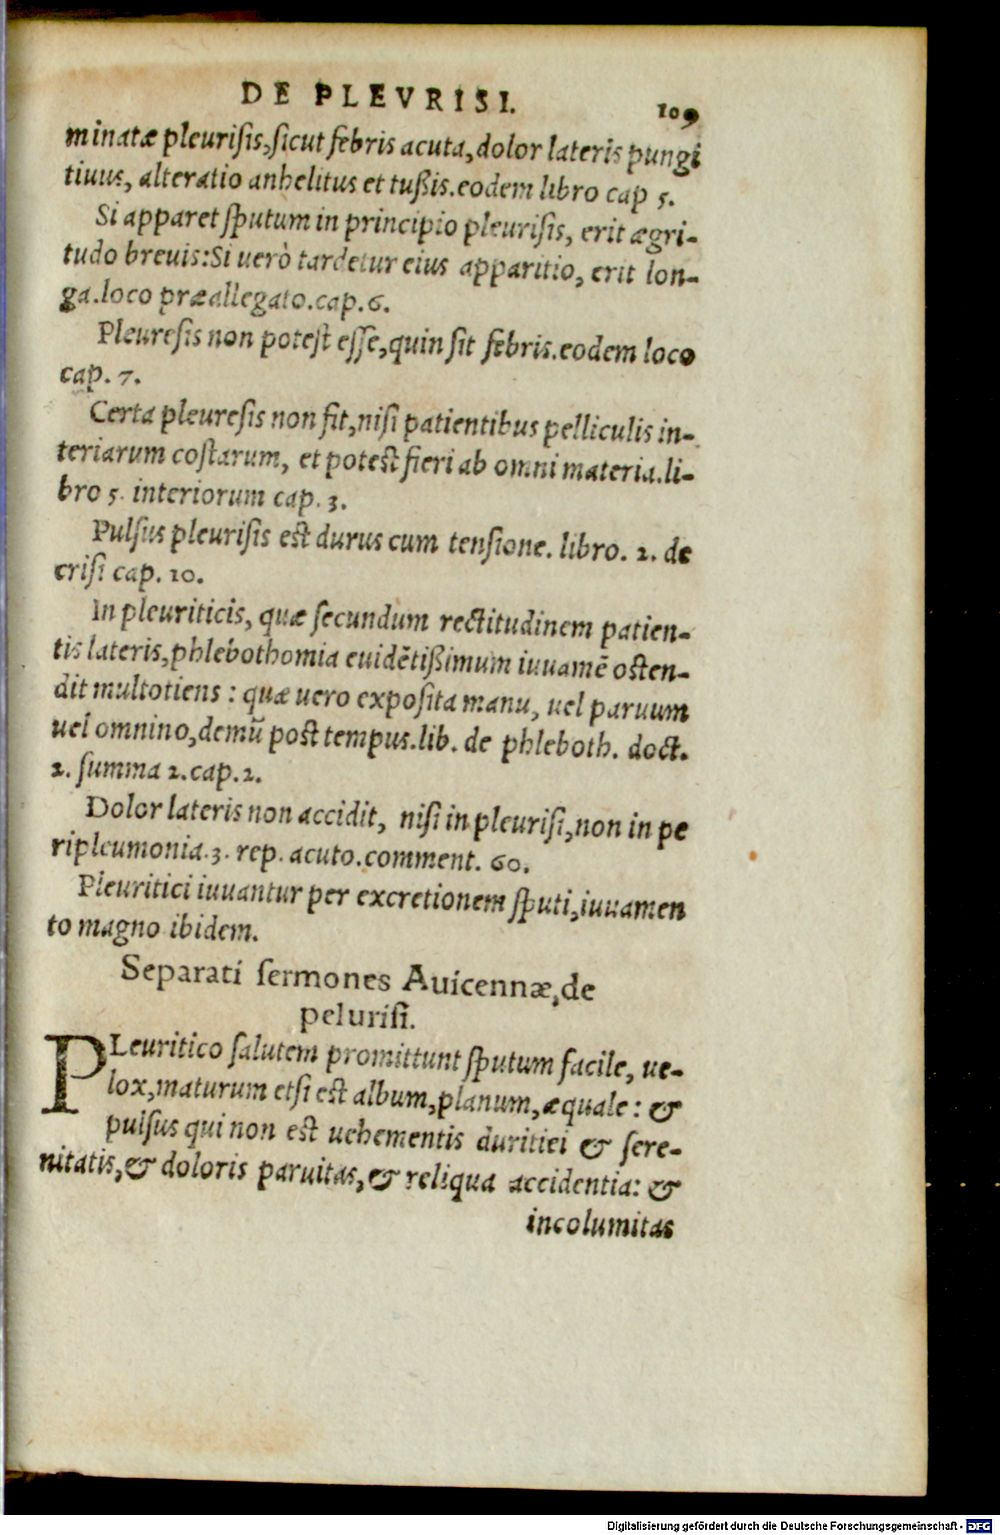 DE PLEVRISI. 109
minatæ pleurisis, sicut febris acuta, dolor lateris pungi
tiuus, alteratio anhelitus et tußis. eodem libro cap 5.
Si apparet sputum in principio pleurisis, erit ægri-
tudo breuis: Si uerò tardetur eius apparitio, erit lon-
ga. loco præallegato. cap. 6.
Pleuresis non potest esse, quin sit febris. eodem loco
cap. 7.
Certa pleuresis non fit, nisi patientibus pelliculis in-
teriarum costarum, et potest fieri ab omni materia. li-
bro 5. interiorum cap. 3.
Pulsus pleurisis est durus cum tensione. libro. 2. de
crisi cap. 10.
In pleuriticis, quæ secundum rectitudinem patien-
tis lateris, phlebothomia euidẽtißimum iuuamẽ osten-
dit multotiens: quæ uero exposita manu, uel paruum
uel omnino, demũ post tempus. lib. de phleboth. doct.
2. summa 2. cap. 2.
Dolor lateris non accidit, nisi in pleurisi, non in pe
ripleumonia. 3. rep. acuto. comment. 60.
Pleuritici iuuantur per excretionem sputi, iuuamen
to magno ibidem.
Separati sermones Auicennæ, de
pelurisi.
PLeuritico salutem promittunt sputum facile, ue-
lox, maturum etsi est album, planum, æquale: &
pulsus qui non est uehementis duritiei & sere-
nitatis, & doloris paruitas, & reliqua accidentia: &
incolumitas
Digitalisierung gefördert durch die Deutsche Forschungsgemeinschaft - DFG